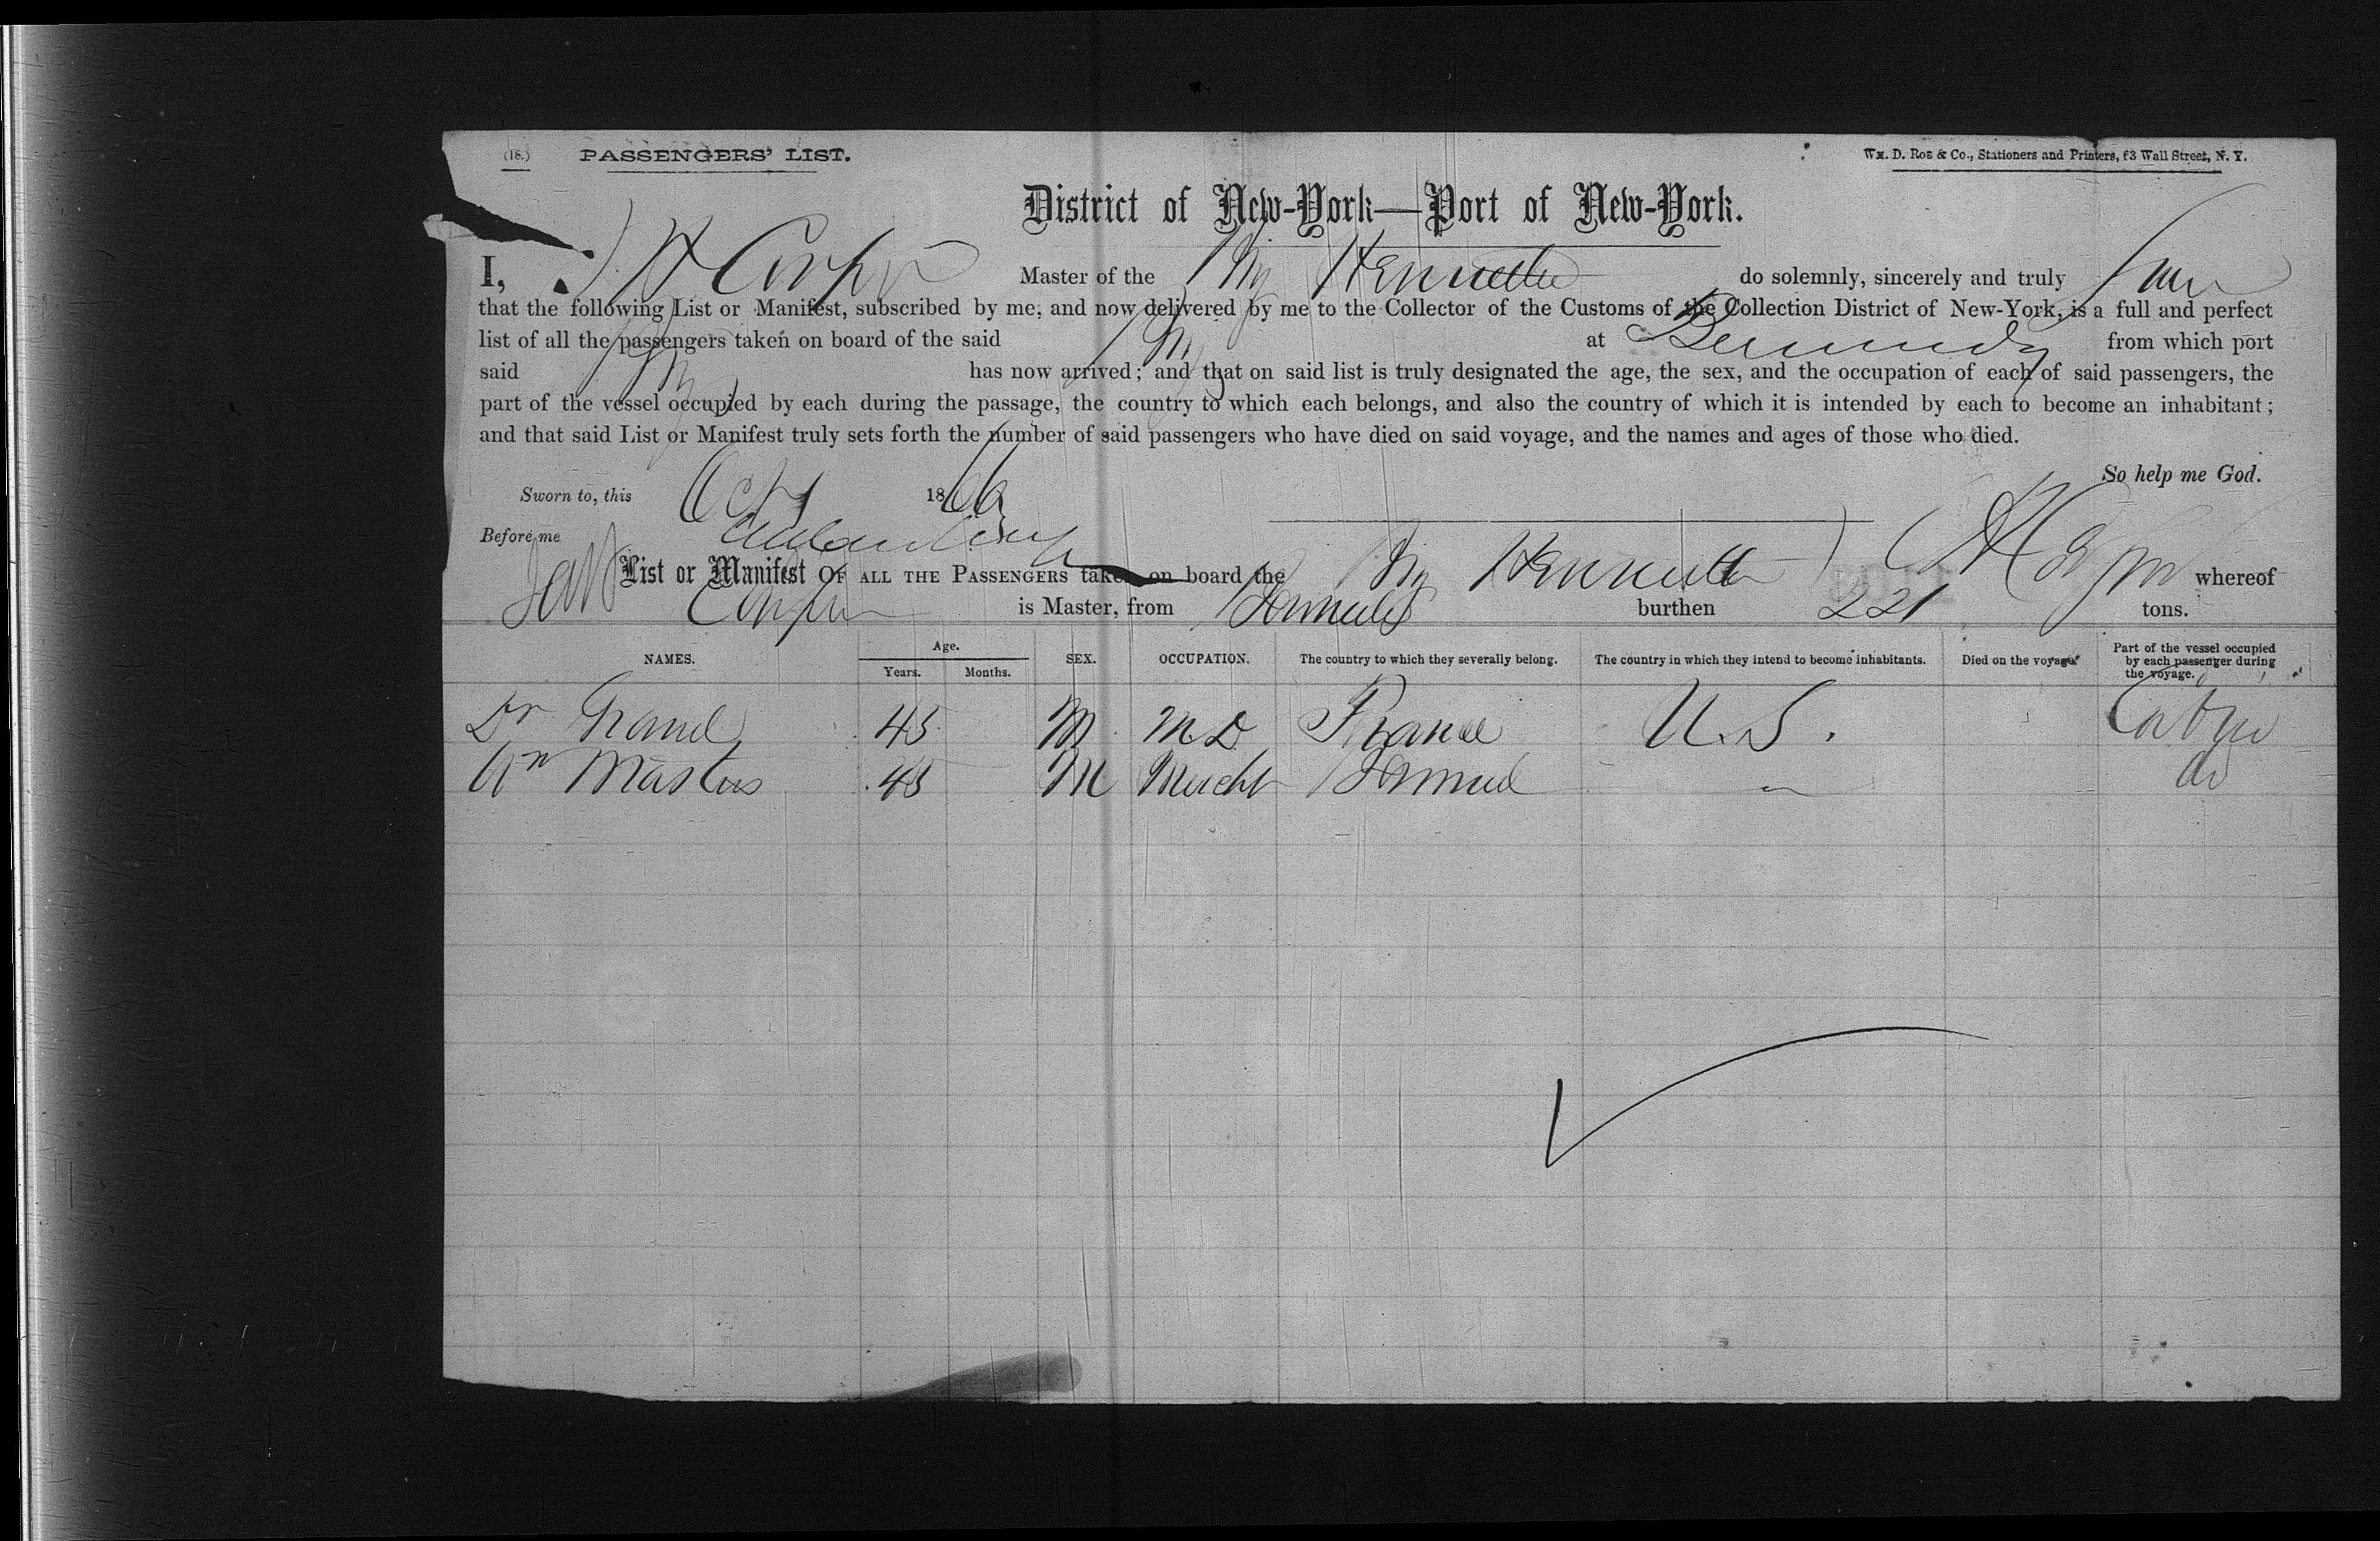 (18.) PASSENGERS' LIST. WM. D. ROE & Co., Stationers and Printers, 63 Wall Street, N. Y.
District of New-York—Port of New-York.
I, Master of the do solemnly, sincerely and truly
that the following List or Manifest, subscribed by me, and now delivered by me to the Collector of the Customs of the Collection District of New-York, is a full and perfect
list of all the passengers taken on board of the said at Bermuda from which port
said has now arrived; and that on said list is truly designated the age, the sex, and the occupation of each of said passengers, the
part of the vessel occupied by each during the passage, the country to which each belongs, and also the country of which it is intended by each to become an inhabitant;
and that said List or Manifest truly sets forth the number of said passengers who have died on said voyage, and the names and ages of those who died.
So help me God.
Sworn to, this Oct 1 1866
Before me
List or Manifest OF ALL THE PASSENGERS taken on board the whereof
is Master, from Bermuda burthen 221 tons.
NAMES. Age. Years. Months. SEX. OCCUPATION. The country to which they severally belong. The country in which they intend to become inhabitants. Died on the voyage. Part of the vessel occupied by each passenger during the voyage.
Dr 45 M M D France U. S. Cabin
Wm Masters 45 M Mercht do